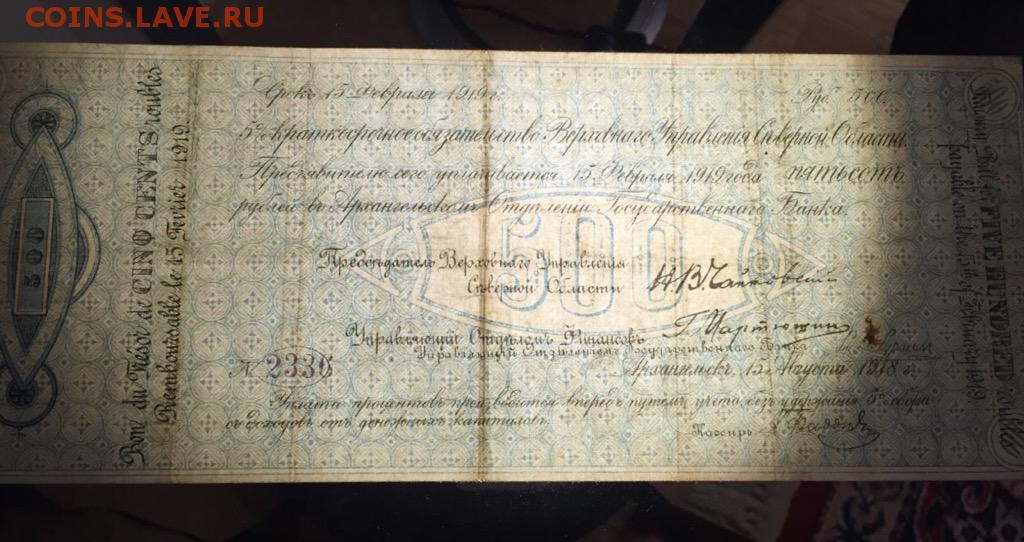 COINS.LAVE.RU
Срокъ 15 Февраля 1919 г. Руб. 500
5% краткосрочное обязательство Верховнаго Управленія Съверной Области.
Предъявителю сего уплачивается 15 Февраля 1919 года пятьсотъ
рублей въ Архангельскомъ Отдѣленіи Государственнаго Банка.
500
Предсѣдатель Верховнаго Управленія
Сѣверной Области Н.В. Чайковскій
Управляющій Отдѣломъ Финансовъ Г. Мартюшинъ
Управляющій Отдѣленіемъ Государственнаго Банка
№ 2336 Архангельскъ, 15 Августа 1918 г.
Уплата процентовъ производится впередъ путемъ учета, безъ удержанія 5% сбора
съ доходовъ отъ денежныхъ капиталовъ. Кассиръ
500
Bon du Trésor de CINQ CENTS roubles
Remboursable le 15 Fevrier 1919
FIVE HUNDRED roubles
payable on the 15th of February 1919